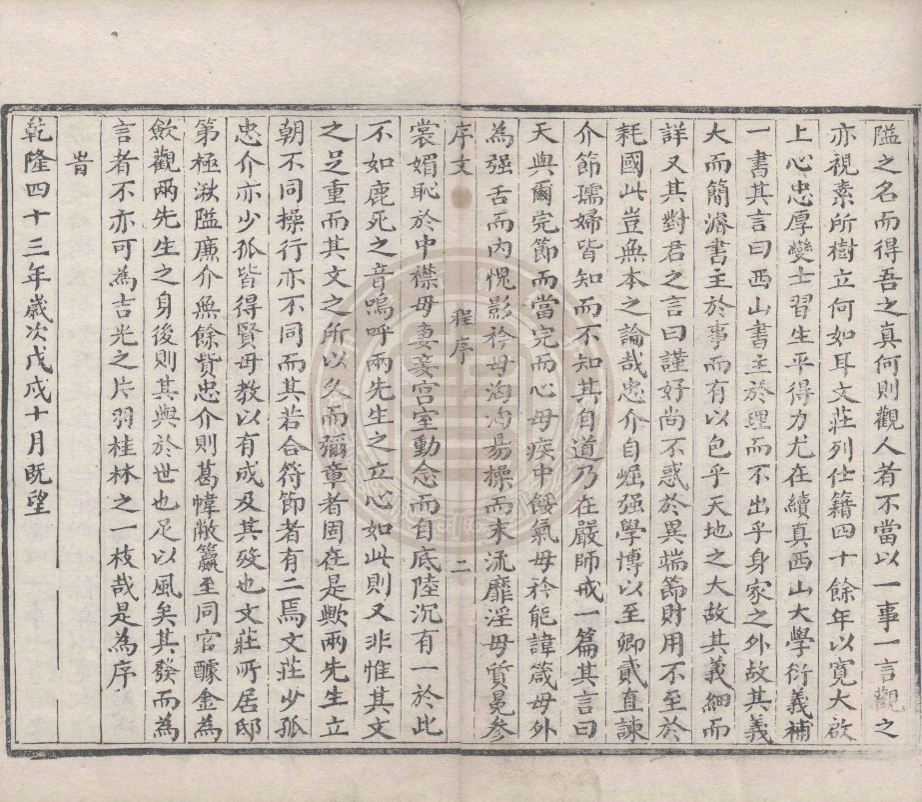 隘之名而得吾之真何則觀人者不當以一事一言觀之
亦視素所樹立何如耳文莊列仕籍四十餘年以寬大啟
上心忠厚變士習生平得力尤在續真西山大學衍義補
一書其言曰西山書主於理而不出乎身家之外故其義
大而簡濬書主於事而有以包乎天地之大故其義細而
詳又其對君之言曰謹好尚不惑於異端節財用不至於
耗國此豈無本之論哉忠介自崛强學博以至卿貳直諫
介節孺婦皆知而不知其自道乃在嚴師戒一篇其言曰
天與爾完節而當完而心毋疾中餒氣毋矜能諱箴毋外
為强舌而內愧影衾毋洶洶易操而末流靡淫毋質冕參
序文
程序
二
裳媚恥於中襟毋妻妾宮室動念而自底陸沉有一於此
不如鹿死之音嗚呼兩先生之立心如此則又非惟其文
之足重而其文之所以久而彌章者固在是歟兩先生立
朝不同操行亦不同而其若合符節者有二焉文莊少孤
忠介亦少孤皆得賢母教以有成及其歿也文莊所居邸
第極湫隘廉介無餘貲忠介則葛幃敝籝至同官醵金為
歛觀兩先生之身後則其與於世也足以風矣其發而為
言者不亦可為吉光之片羽桂林之一枝哉是為序
旹
乾隆四十三年歲次戊戌十月既望